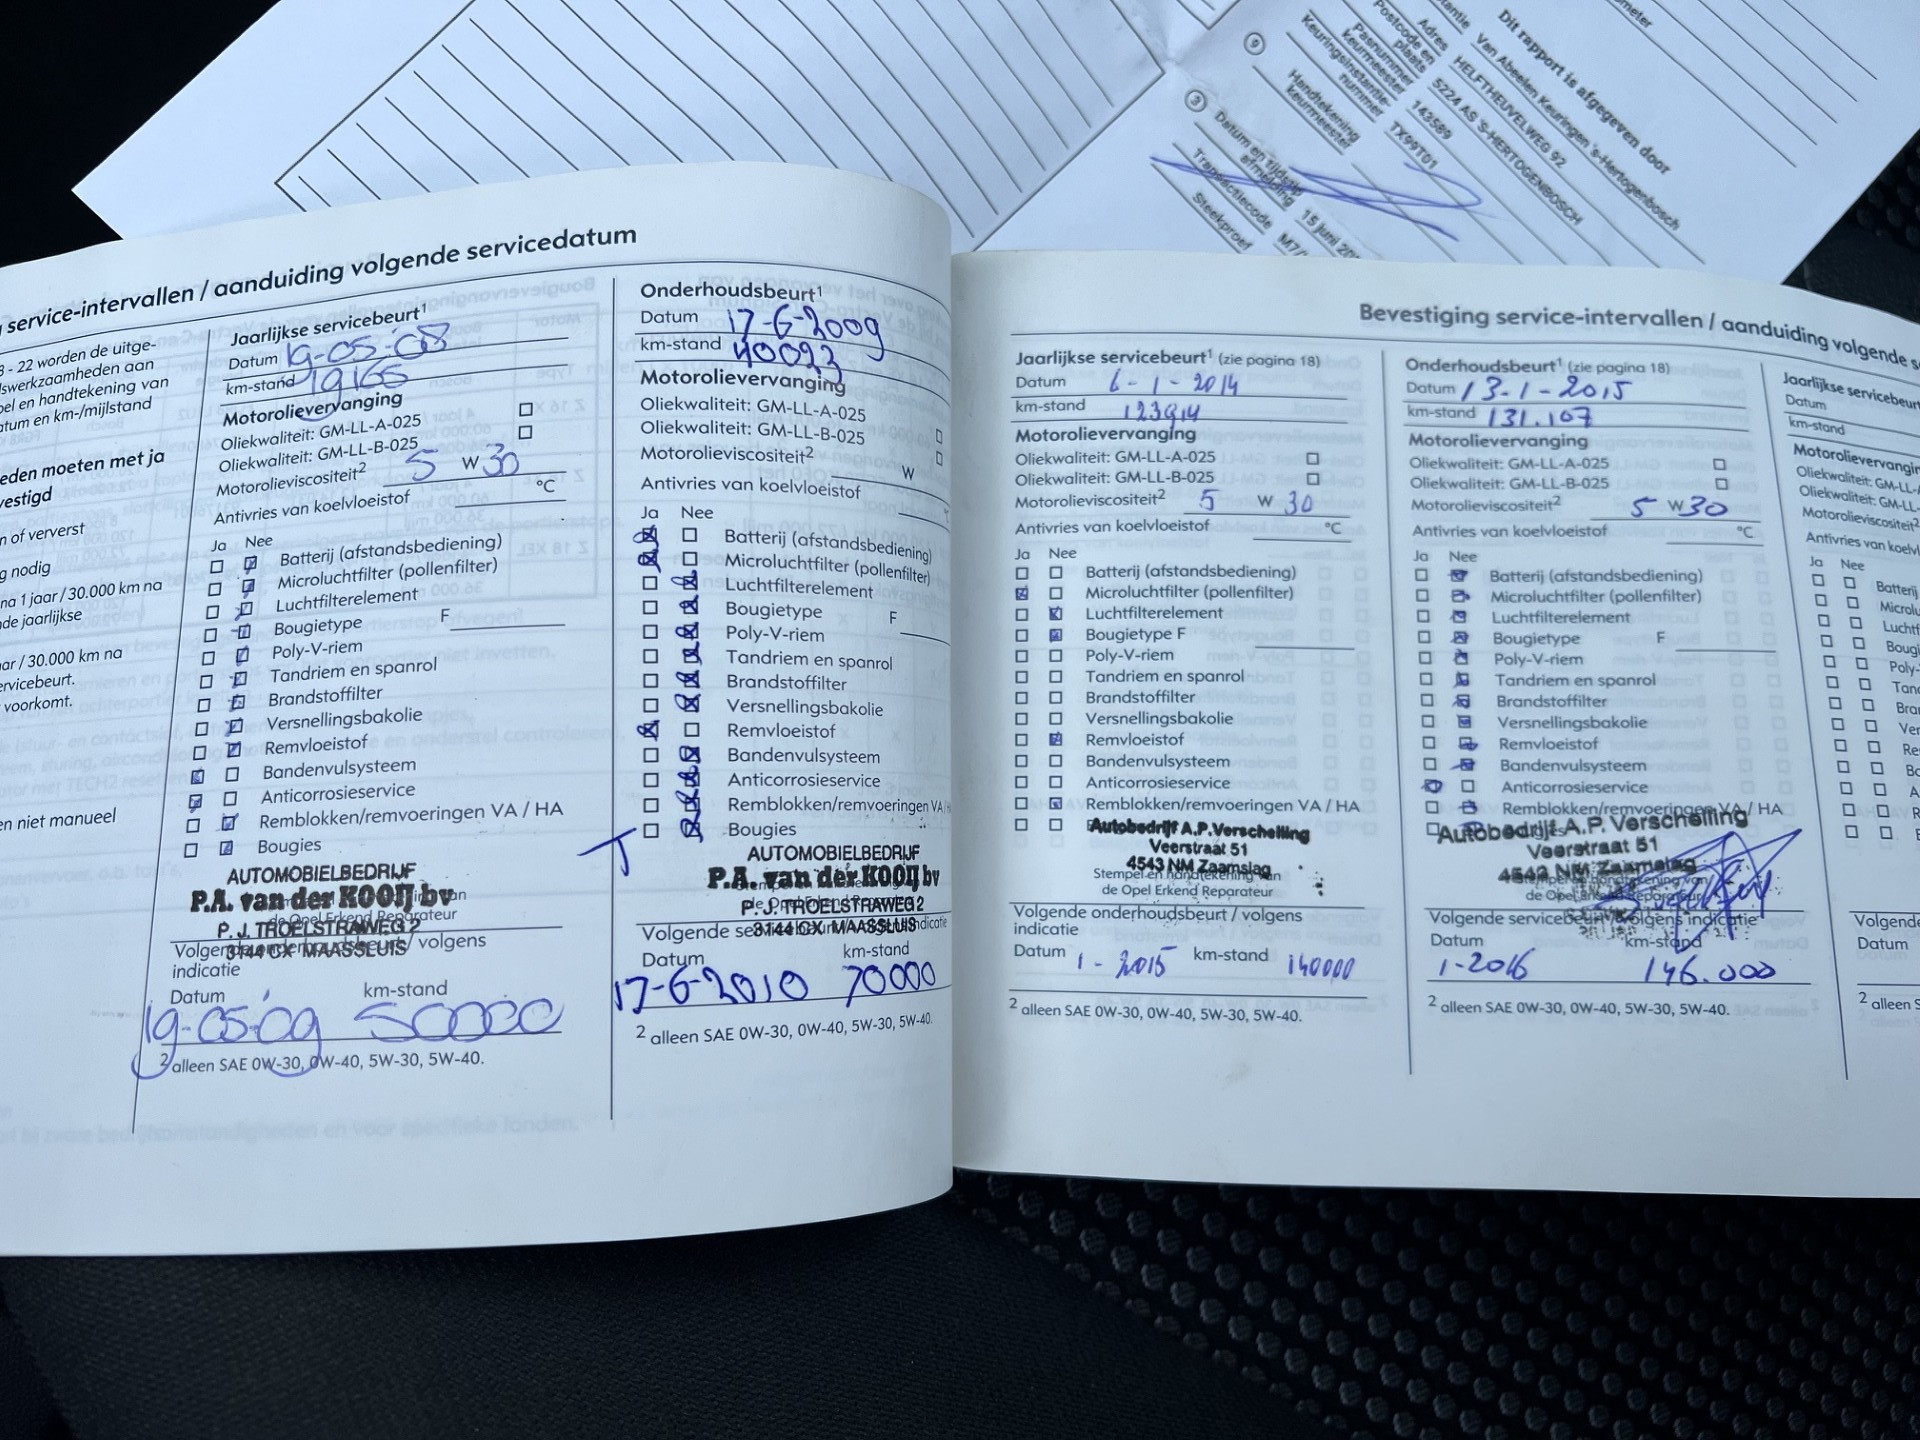 Dit rapport is afgegeven door
Van Abeelen Keuringen 's-Hertogenbosch
Adres HELFTHEUVELWEG 92
Postcode en plaats 5224 AS 'S-HERTOGENBOSCH
Pasnummer keurmeester 143589
Keuringsinstantie-nummer TX99T01
9 Handtekening keurmeester
3 Datum en tijdstip afmelding 15 juni
Transactiecode M7/
Steekproef
service-intervallen / aanduiding volgende servicedatum
3 - 22 worden de uitge-
dswerkzaamheden aan
pel en handtekening van
atum en km-/mijlstand
eden moeten met ja
vestigd
n of ververst
g nodig
na 1 jaar / 30.000 km na
de jaarlijkse
aar / 30.000 km na
ervicebeurt.
voorkomt.
en niet manueel
Jaarlijkse servicebeurt¹
Datum 19-05-08
km-stand 19165
Motorolievervanging
Oliekwaliteit: GM-LL-A-025
Oliekwaliteit: GM-LL-B-025
Motorolieviscositeit² 5 W 30
Antivries van koelvloeistof °C
Ja Nee
Batterij (afstandsbediening)
Microluchtfilter (pollenfilter)
Luchtfilterelement
Bougietype F
Poly-V-riem
Tandriem en spanrol
Brandstoffilter
Versnellingsbakolie
Remvloeistof
Bandenvulsysteem
Anticorrosieservice
Remblokken/remvoeringen VA / HA
Bougies
AUTOMOBIELBEDRIJF
P.A. van der KOOIJ bv
de Opel Erkend Reparateur
P. J. TROELSTRAWEG 2
3144 CX MAASSLUIS
Volgende onderhoudsbeurt / volgens
indicatie
Datum km-stand
19-05-09 50000
² alleen SAE 0W-30, 0W-40, 5W-30, 5W-40.
Onderhoudsbeurt¹
Datum 17-6-2009
km-stand 40093
Motorolievervanging
Oliekwaliteit: GM-LL-A-025
Oliekwaliteit: GM-LL-B-025
Motorolieviscositeit² W
Antivries van koelvloeistof
Ja Nee
Batterij (afstandsbediening)
Microluchtfilter (pollenfilter)
Luchtfilterelement
Bougietype F
Poly-V-riem
Tandriem en spanrol
Brandstoffilter
Versnellingsbakolie
Remvloeistof
Bandenvulsysteem
Anticorrosieservice
Remblokken/remvoeringen VA / H
Bougies
AUTOMOBIELBEDRIJF
P.A. van der KOOIJ bv
P. J. TROELSTRAWEG 2
3144 CX MAASSLUIS
Volgende servicebeurt / volgens indicatie
Datum km-stand
17-6-2010 70000
² alleen SAE 0W-30, 0W-40, 5W-30, 5W-40.
Bevestiging service-intervallen / aanduiding volgende s
Jaarlijkse servicebeurt¹ (zie pagina 18)
Datum 6-1-2014
km-stand 123914
Motorolievervanging
Oliekwaliteit: GM-LL-A-025
Oliekwaliteit: GM-LL-B-025
Motorolieviscositeit² 5 W 30
Antivries van koelvloeistof °C
Ja Nee
Batterij (afstandsbediening)
Microluchtfilter (pollenfilter)
Luchtfilterelement
Bougietype F
Poly-V-riem
Tandriem en spanrol
Brandstoffilter
Versnellingsbakolie
Remvloeistof
Bandenvulsysteem
Anticorrosieservice
Remblokken/remvoeringen VA / HA
Autobedrijf A.P. Verschelling
Veerstraat 51
4543 NM Zaamslag
Stempel en handtekening van
de Opel Erkend Reparateur
Volgende onderhoudsbeurt / volgens
indicatie
Datum 1-2015 km-stand 140000
² alleen SAE 0W-30, 0W-40, 5W-30, 5W-40.
Onderhoudsbeurt¹ (zie pagina 18)
Datum 13-1-2015
km-stand 131.107
Motorolievervanging
Oliekwaliteit: GM-LL-A-025
Oliekwaliteit: GM-LL-B-025
Motorolieviscositeit² 5 W 30
Antivries van koelvloeistof °C
Ja Nee
Batterij (afstandsbediening)
Microluchtfilter (pollenfilter)
Luchtfilterelement
Bougietype F
Poly-V-riem
Tandriem en spanrol
Brandstoffilter
Versnellingsbakolie
Remvloeistof
Bandenvulsysteem
Anticorrosieservice
Remblokken/remvoeringen VA / HA
Autobedrijf A.P. Verschelling
Veerstraat 51
4543 NM Zaamslag
de Opel Erkend Reparateur
Volgende servicebeurt / volgens indicatie
Datum km-stand
1-2016 146.000
² alleen SAE 0W-30, 0W-40, 5W-30, 5W-40.
Jaarlijkse servicebeurt
Datum
km-stand
Motorolievervangin
Oliekwaliteit: GM-LL-
Oliekwaliteit: GM-LL-
Motorolieviscositeit²
Antivries van koelv
Ja Nee
Batteri
Microlu
Luchtf
Bougi
Poly-
Tand
Bra
Ver
Re
Ba
A
R
Volgende
Datum
² alleen S